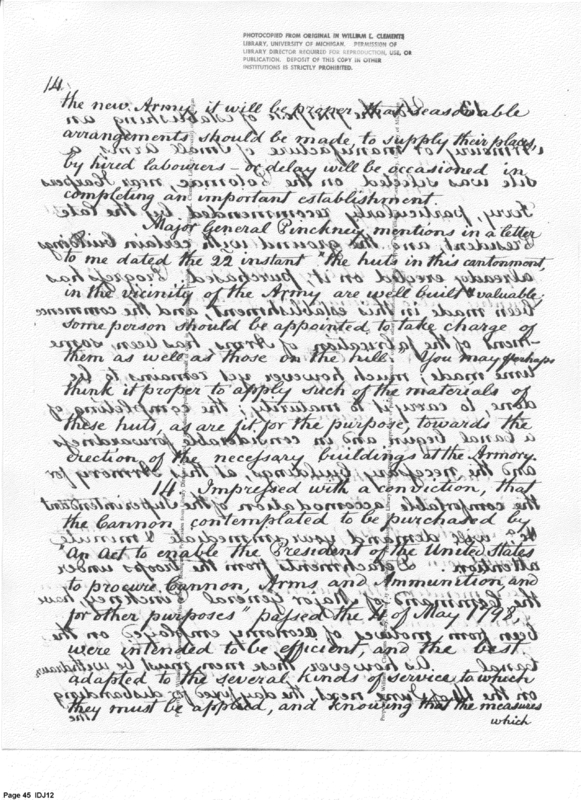 PHOTOCOPIED FROM ORIGINAL IN WILLIAM L. CLEMENTS
LIBRARY, UNIVERSITY OF MICHIGAN. PERMISSION OF
LIBRARY DIRECTOR REQUIRED FOR REPRODUCTION, USE, OR
PUBLICATION. DEPOSIT OF THIS COPY IN OTHER
INSTITUTIONS IS STRICTLY PROHIBITED.
14
the new Army, it will be proper that seasonable
arrangements should be made to supply their places,
by hired labourers – or delay will be occasioned in
completing an important establishment.
Major General Pinckney mentions in a letter
to me dated the 22 instant "the huts in this cantonment,
in the vicinity of the Army are well built & valuable;
some person should be appointed to take charge of
them as well as those on the hill." You may perhaps
think it proper to apply such of the materials of
these huts, as are fit for the purpose, towards the
erection of the necessary buildings at the Armory.
14 Impressed with a conviction, that
the Cannon contemplated to be purchased by
"An Act to enable the President of the United States
to procure Cannon, Arms and Ammunition and
for other purposes" passed the 4 of May 1798,
were intended to be efficient, and the best
adapted to the several kinds of service to which
they must be applied, and knowing that the measures
which
Page 45 IDJ12